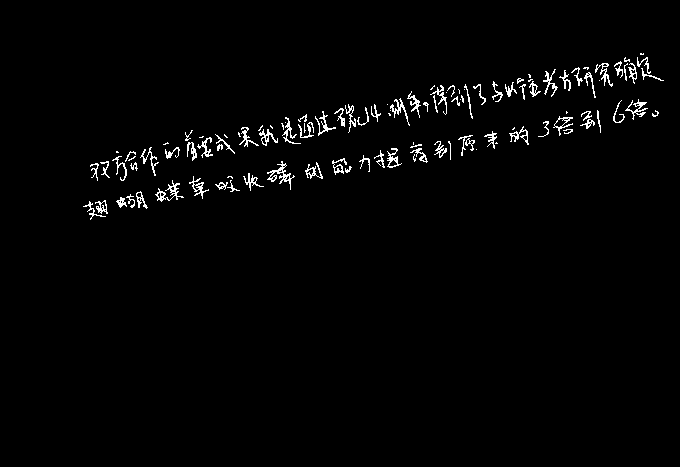 双方合作的首要成果就是通过碳14测年,得到了与以往考古研究确定
翅蝴蝶草吸收磷的能力提高到原来的3倍到6倍。